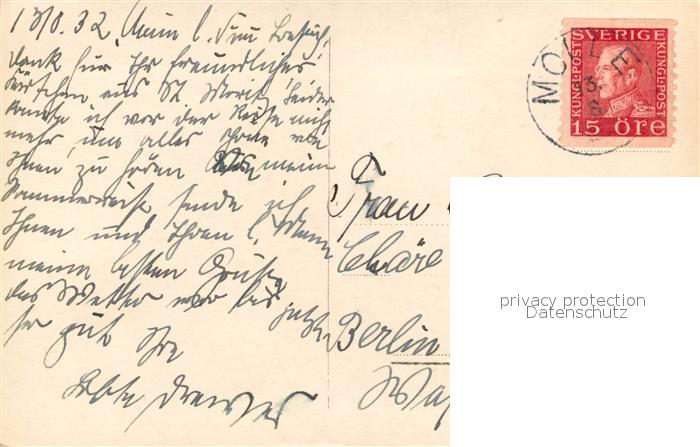 13/8. 32. Meine l. Frau
Dank für Ihr freundliches
aus St Moritz, leider
konnte ich vor der Reise nicht
mehr, um alles schöne von
Ihnen zu hören meine
Sommerreise sende ich
Ihnen und Ihren l. Mann
meine besten Grüße
das Wetter war bis jetzt
so gut Ihre
SVERIGE
KUNGL·POST
KUNGL·POST
15 ÖRE
MÖLLE
Frau
Cläre
Berlin
privacy protection
Datenschutz